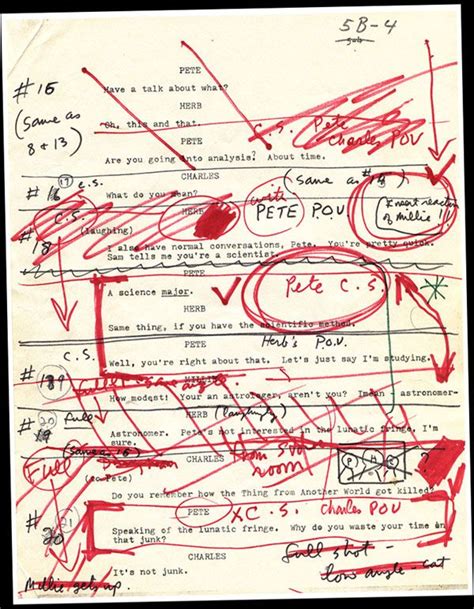 5B-4
PETE
#15
Have a talk about what?
HERB
(Same as
Oh, this and that.
8 & 13)
PETE
C.S. Pete
Charles POV
Are you going into analysis? About time.
CHARLES
(Same as #14)
#16 17 C.S.
What do you mean?
with
C.S.
HERB
PETE P.O.V.
(Insert reaction
of Millie!!)
#8
(laughing)
I also have normal conversations, Pete. You're pretty quick.
Sam tells me you're a scientist.
PETE
Pete C.S.
A science major.
HERB
Same thing, if you have the scientific method.
PETE
Herb's P.O.V.
C.S.
Well, you're right about that. Let's just say I'm studying.
#
full same angle
How modest! Your an astrologer, aren't you? Imean - astronomer-
#20 full
HERB
(laughingly)
19
Astronomer. Pete's not interested in the lunatic fringe, I'm
sure.
(Same as 16)
Full
CHARLES
from
room
P
H
?
(to Pete)
Do you remember how the Thing from Another World got killed?
# 21
PETE
XC.S. Charles POV
20
Speaking of the lunatic fringe. Why do you waste your time on
that junk?
CHARLES
full shot -
low angle - cat
It's not junk.
Millie gets up.